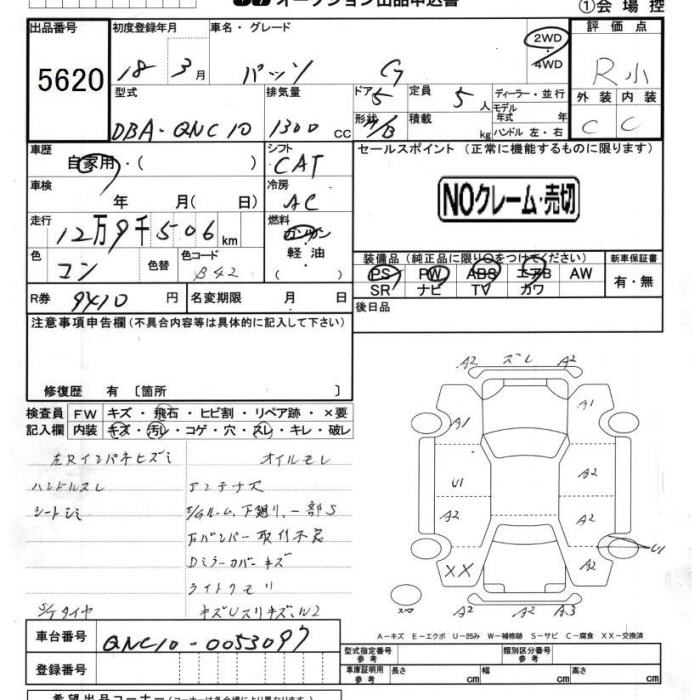 オークション出品申込書 ①会場控
出品番号 初度登録年月 車名・グレード 2WD 評価点
5620 18年3月 パッソ G ・4WD R小
型式 排気量 ドア 定員 ディーラー・並行 外装 内装
DBA-QNC10 1300cc 5 5人 モデル年式 年 C C
形状 H/B 積載 kg ハンドル 左・右
車歴 自家用・( ) シフト CAT セールスポイント (正常に機能するものに限ります)
車検 年 月( 日) 冷房 AC NOクレーム・売切
走行 12万9千506km 燃料 ガソリン
色 コン 色替 色コード B42 軽油 ( )
装備品 (純正品に限り○をつけてください) 新車保証書
PS PW ABS エアB AW 有・無
SR ナビ TV カワ
R券 9410円 名変期限 月 日 後日品
注意事項申告欄 (不具合内容等は具体的に記入して下さい)
修復歴 有 〔箇所 〕
検査員 FW キズ・飛石・ヒビ割・リペア跡・×要
記入欄 内装 キズ・汚レ・コゲ・穴・スレ・キレ・破レ
オイルモレ
ハンドルスレ アンテナ欠
シートシミ E/Gルーム、下廻り、一部S
Fバンパー取付不良
Dミラーカバーキズ
ライトクモリ
S/Tタイヤ
A2 ズレ A2
A1 A1
U1 A2
A2 A2
XX U1
スペア A2 A2 A3
A-キズ E-エクボ U-凹み W-補修跡 S-サビ C-腐食 XX-交換済
車台番号 QNC10-0053097
型式指定番号 参考 類別区分番号 参考
登録番号 車庫証明用 参考 長さ cm 幅 cm 高さ cm
希望出品コーナー